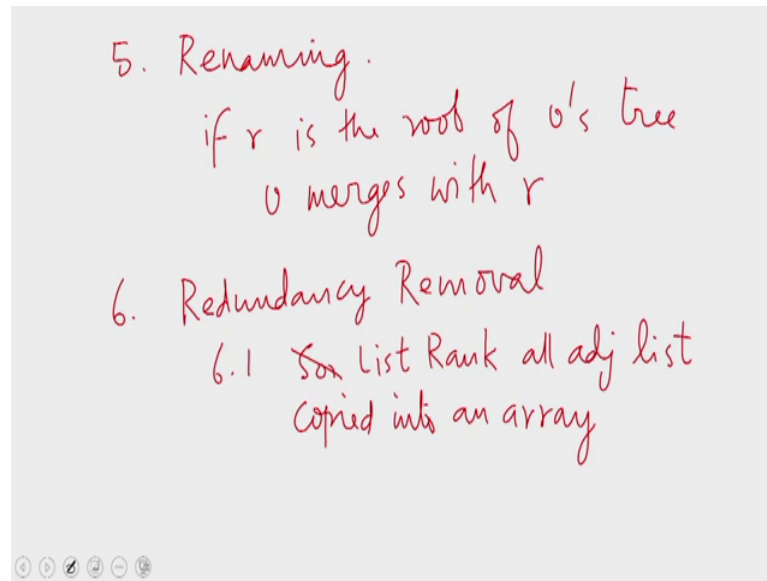 5. Renaming.
if r is the root of v's tree
v merges with r
6. Redundancy Removal
6.1 List Rank all adj list
copied into an array